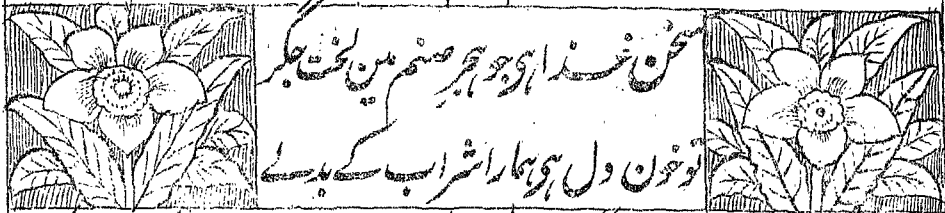 سخن غذا ہی جو ہجرِ صنم مین لختِ جگر
تو خونِ دل ہی ہمارا شراب کے بدلے